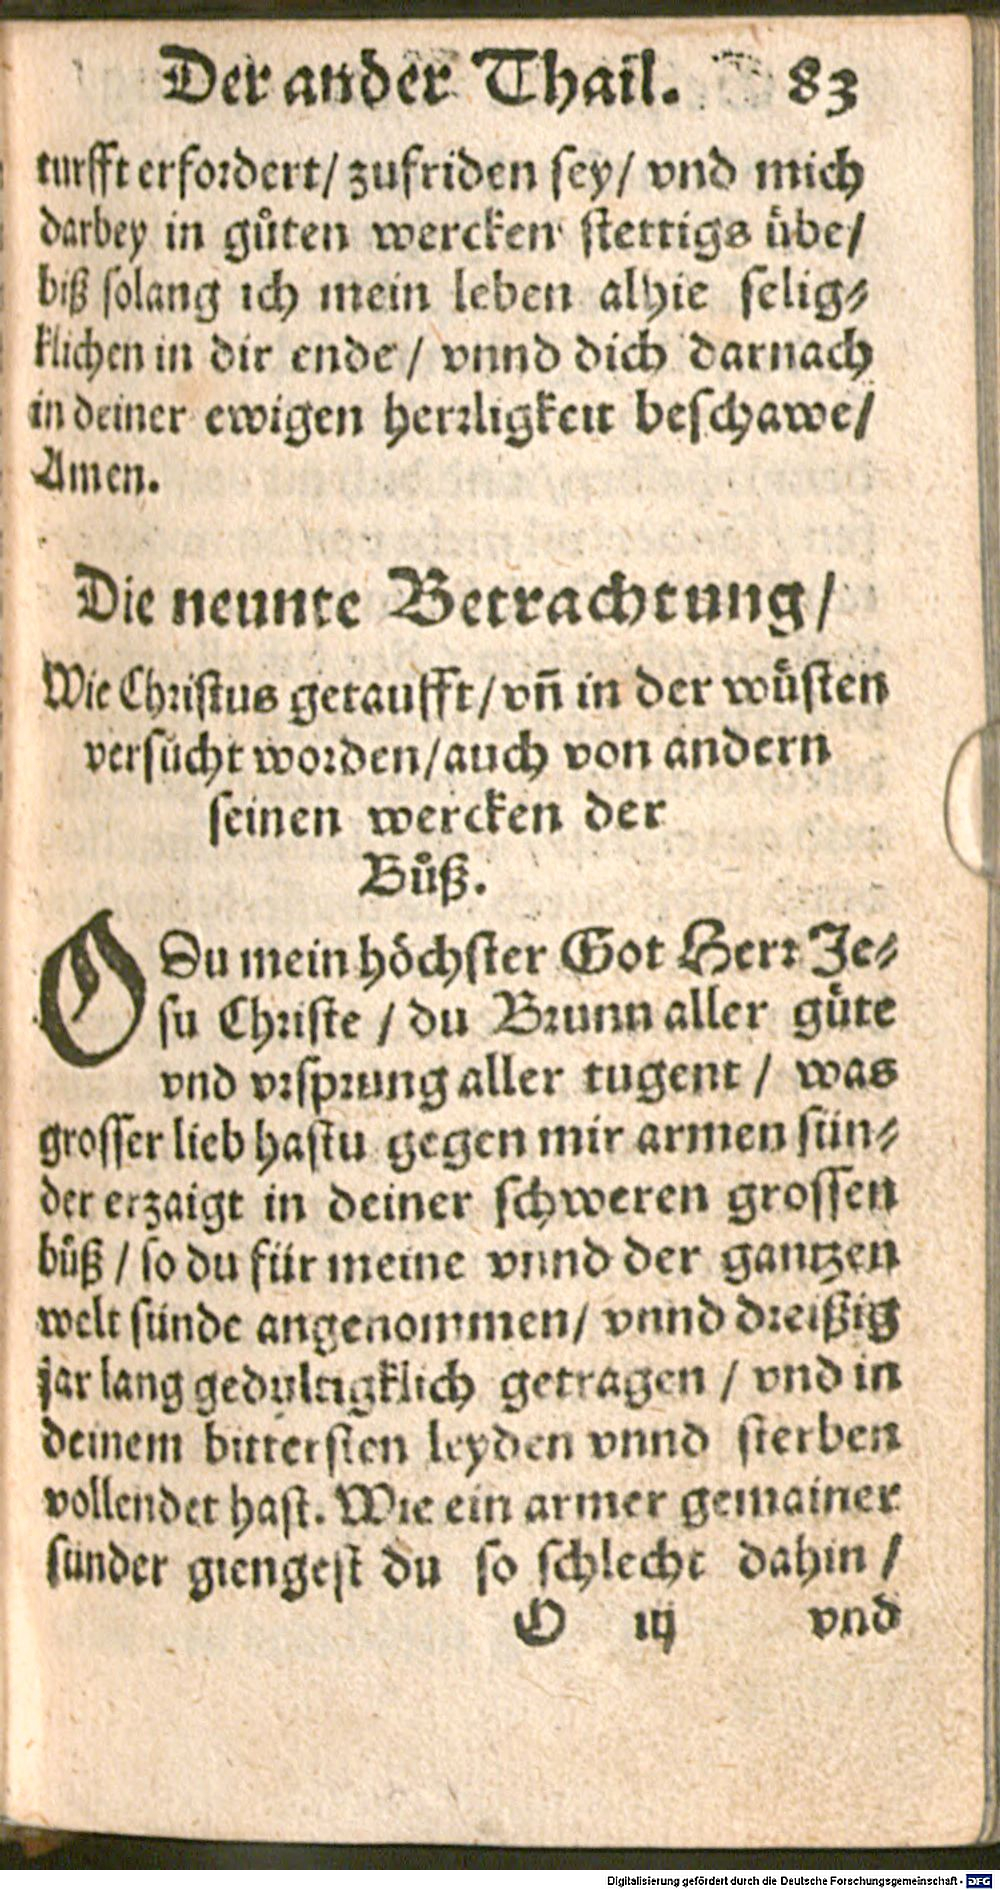 Der ander Thail. 83
turfft erfordert/ zufriden sey/ vnd mich
darbey in gůten wercken stettigs übe/
biß solang ich mein leben alhie selig-
klichen in dir ende/ vnnd dich darnach
in deiner ewigen herrligkeit beschawe/
Amen.
Die neunte Betrachtung/
Wie Christus getaufft/ vñ in der wüsten
versůcht worden/ auch von andern
seinen wercken der
Bůß.
O Du mein höchster Got Herr Je-
su Christe/ du Brunn aller güte
vnd vrsprung aller tugent/ was
grosser lieb hastu gegen mir armen sün-
der erzaigt in deiner schweren grossen
bůß/ so du für meine vnnd der gantzen
welt sünde angenommen/ vnnd dreißig
jar lang gedultigklich getragen/ vnd in
deinem bittersten leyden vnnd sterben
vollendet hast. Wie ein armer gemainer
sünder giengest du so schlecht dahin/
O iij vnd
Digitalisierung gefördert durch die Deutsche Forschungsgemeinschaft - DFG